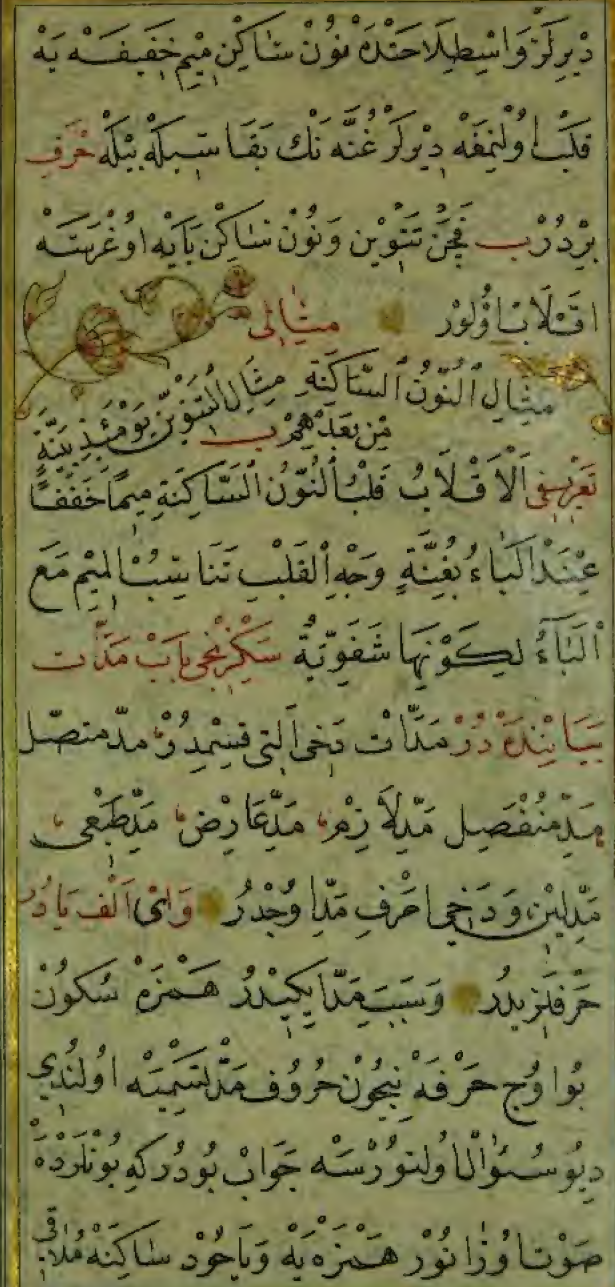 دِيرلَرْ وَاصْطِلَاحَتْدَهْ نُونْ سَاكِنْ مِيمِ خَفِيفَهْ يَهْ
قَلْب اُولْنمِغَهْ دِيرلَرْ غُنَّه نَكْ بَقَاسِيلَهْ بَيْلَهْ حَرْفِ
بِرْدُرْ ب قَچَنْ تَنْوِين وَنُونْ سَاكِنْ بَايَهْ اوُغْرَسَهْ
اقْلَابْ اوُلوُرْ مِثَالِى
مِثَالِ اَلنُّونُ السَّاكِنَةِ مِثَال التَّنْوِينِ يَوْمَئِذٍ بَيِّنَةٍ
مِن بَعْدِهِمْ ب
تَعْرِيفِى اَلْاِقْلَابُ قَلْبُ اَلنُّونُ السَّاكِنَةِ مِيمًا خَفَفًا
عِنْدَ الْبَاءُ بُغِنَّةٍ وَجْهِ الْقَلْبِ تَنَاسُبُ الْمِيْمِ مَعَ
اَلْبَاءُ لِكَوْنِهَا شَفَوِيَّةُ سَكِزِنْجِى بَابْ مَدَّات
بَيَانِنْدَهْ دُرْ مَدَّاتْ دَخِى اَلْتِى قِسْمِدُرْ مدّ متصّل
مَدِّ مُنْفَصِل مَدِّ لَازِمْ مَدِّ عَارِضْ مَدِّ طَبْعِى
مَدِّ لِينْ وَ دَخِى اَحْرفِ مَدِّ اوُچْدُرْ وَاىْ اَلْف يَا دُر
حَرْفلَرِيدُر وَسَبَبِ مَدِّ ايكِيدُرْ هَمْزَهْ سُكوُنْ
بُو اوُچ حَرْفَهْ نِيچُونْ حُرُوف مَدّ تَسْمِيَهْ اوُلنْدِى
دِيُو سُئوَال اوُلنوُرْسَه جَوَابْ بُودُركِه بُونْلَرْدَهْ
صَوْت اوُزَانوُرْ هَمْزَهْ يَهْ وَيَاخُودْ سَاكِنَهْ مُلَاقِى